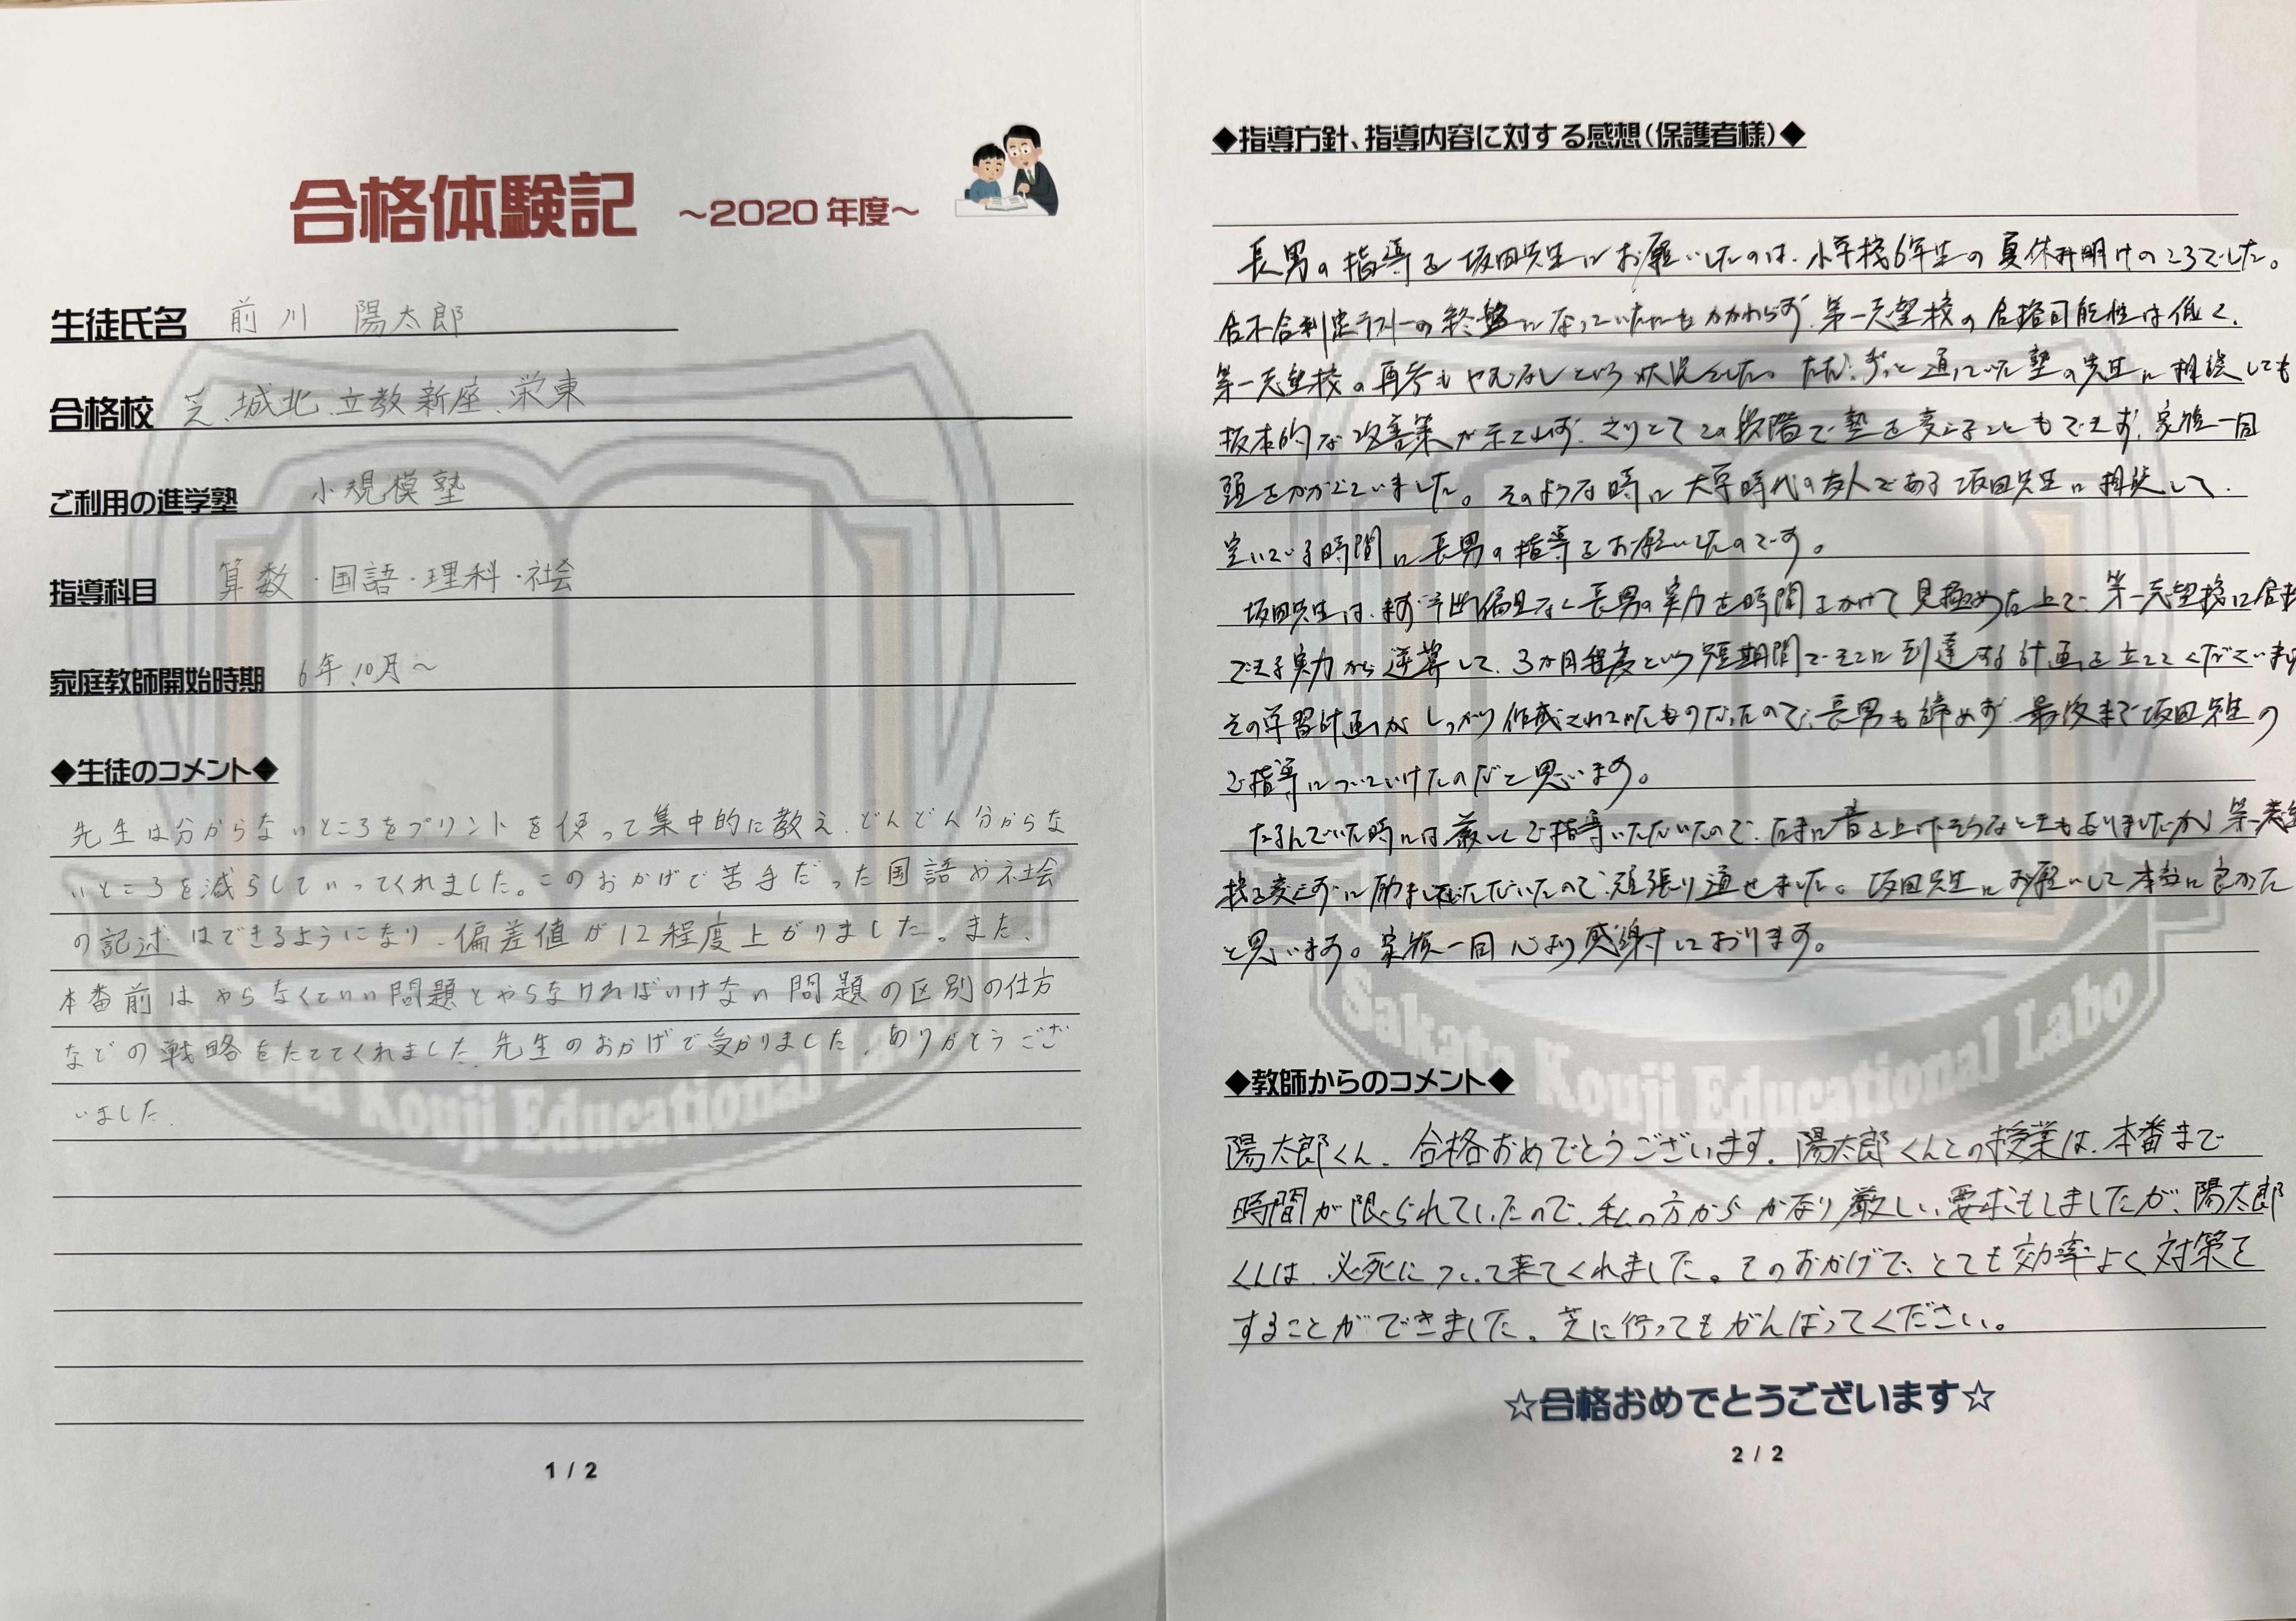 合格体験記 ～2020年度～
生徒氏名 前川 陽太郎
合格校 芝、城北、立教新座、栄東
ご利用の進学塾 小規模塾
指導科目 算数・国語・理科・社会
家庭教師開始時期 6年10月～
◆生徒のコメント◆
先生は分からないところをプリントを使って集中的に教え、どんどん分からな
いところを減らしていってくれました。このおかげで苦手だった国語や社会
の記述はできるようになり、偏差値が12程度上がりました。また、
本番前はやらなくていい問題とやらなければいけない問題の区別の仕方
などの戦略をたててくれました。先生のおかげで受かりました。ありがとうござ
いました。
Sakata Kouji Educational Labo
1 / 2
◆指導方針、指導内容に対する感想(保護者様)◆
長男の指導を坂田先生にお願いしたのは、小学校6年生の夏休み明けのころでした。
合不合判定テストの終盤になっていたにもかかわらず、第一志望校の合格可能性は低く、
第一志望校の再考もやむなしという状況でした。ただ、ずっと通っていた塾の先生に相談しても
抜本的な改善策が示されず、さりとてこの段階で塾を変えることもできず、家族一同
頭をかかえていました。そのような時に大学時代の友人である坂田先生に相談して、
空いている時間に長男の指導をお願いしたのです。
坂田先生は、まず予断偏見なく長男の実力を時間をかけて見極めた上で、第一志望校に合格
できる実力から逆算して、3か月程度という短期間でそこに到達する計画を立ててくださいまし
その学習計画がしっかり作成されていたものだったので、長男も諦めず、最後まで坂田先生の
ご指導についていけたのだと思います。
たるんでいた時には厳しくご指導いただいたので、たまに音を上げそうなときもありましたが、第一志望
校を変えずに励ましていただいたので、頑張り通せました。坂田先生にお願いして本当に良かった
と思います。家族一同心より感謝しております。
Sakata Kouji Educational Labo
◆教師からのコメント◆
陽太郎くん、合格おめでとうございます。陽太郎くんとの授業は、本番まで
時間が限られていたので、私の方からかなり厳しい要求もしましたが、陽太郎
くんは、必死について来てくれました。そのおかげで、とても効率よく対策を
することができました。芝に行ってもがんばってください。
☆合格おめでとうございます☆
2 / 2